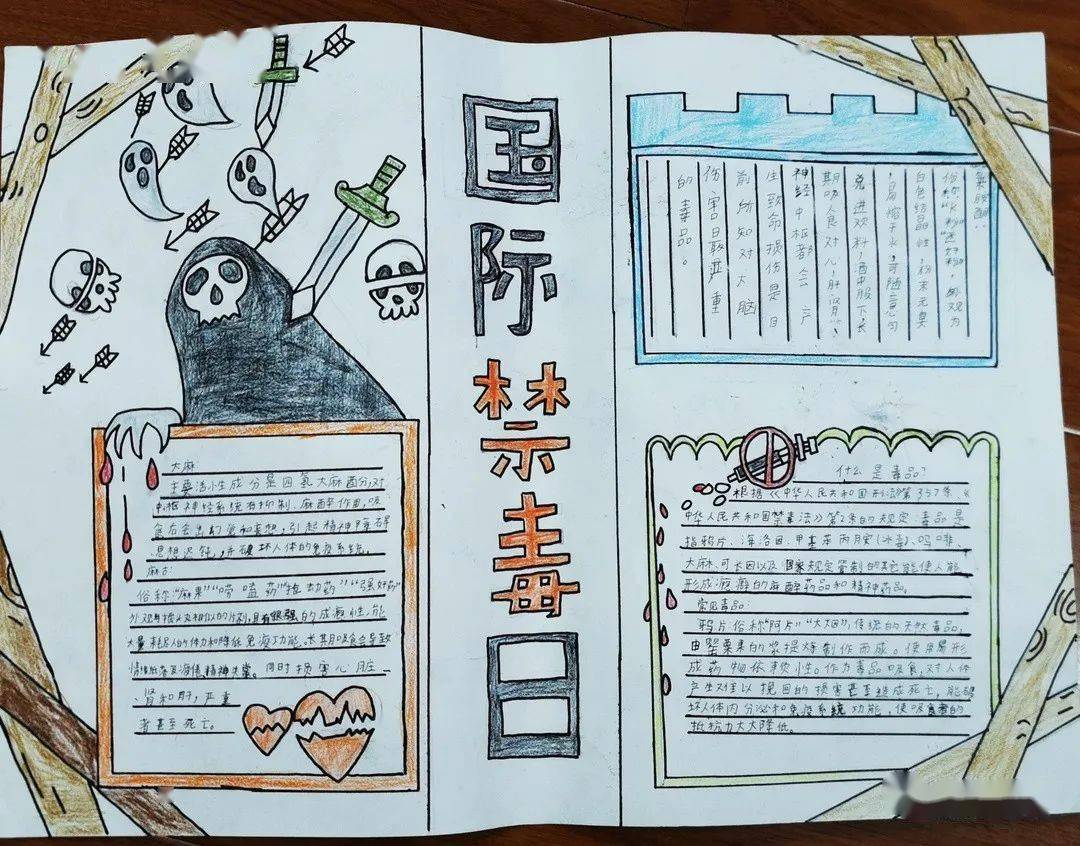 国际禁毒日
大麻
主要活性成分是四氢大麻酚分,对
中枢神经系统有抑制、麻醉作用,吸
食后会出幻觉和妄想,引起精神障碍
思想迟钝,并破坏人体的免疫系统。
麻古:
俗称"麻果""唠嗑药""拉劲药""强好药"
外观与摇头丸相似的片剂,具有很强的成瘾性,能
大量耗尽人的体力和降低免疫功能。长期吸食会导致
情绪低落及海倦精神失常。同时损害心脏
、肾和肝,严重
者甚至死亡。
氯胺酮:
俗称"K粉",外观为
白色结晶性,粉末无臭
,易熔于水,可随意勾
兑进饮料,酒中服下,长
期吸食对心,肝肾
神经中枢都会产
生致命损伤是目
前所知对大脑
伤害日最严重
的毒品。
什么是毒品?
根据《中华人民共和国刑法》第357条,《
中华人民共和国禁毒法》第2条的规定毒品是
指鸦片、海洛因、甲基苯丙胺(冰毒)、吗啡、
大麻、可卡因以及国家规定管制的其它能使人能
形成瘾癖的麻醉药品和精神药品。
常见毒品
鸦片俗称"阿片""大烟",传统的天然毒品,
由罂粟果的浆提炼制作而成。使用易形
成药物依赖性。作为毒品吸食,对人体
产生难以挽回的损害甚至造成死亡,能破
坏人体内分泌和免疫系统功能,使吸食者的
抵抗力大大降低。